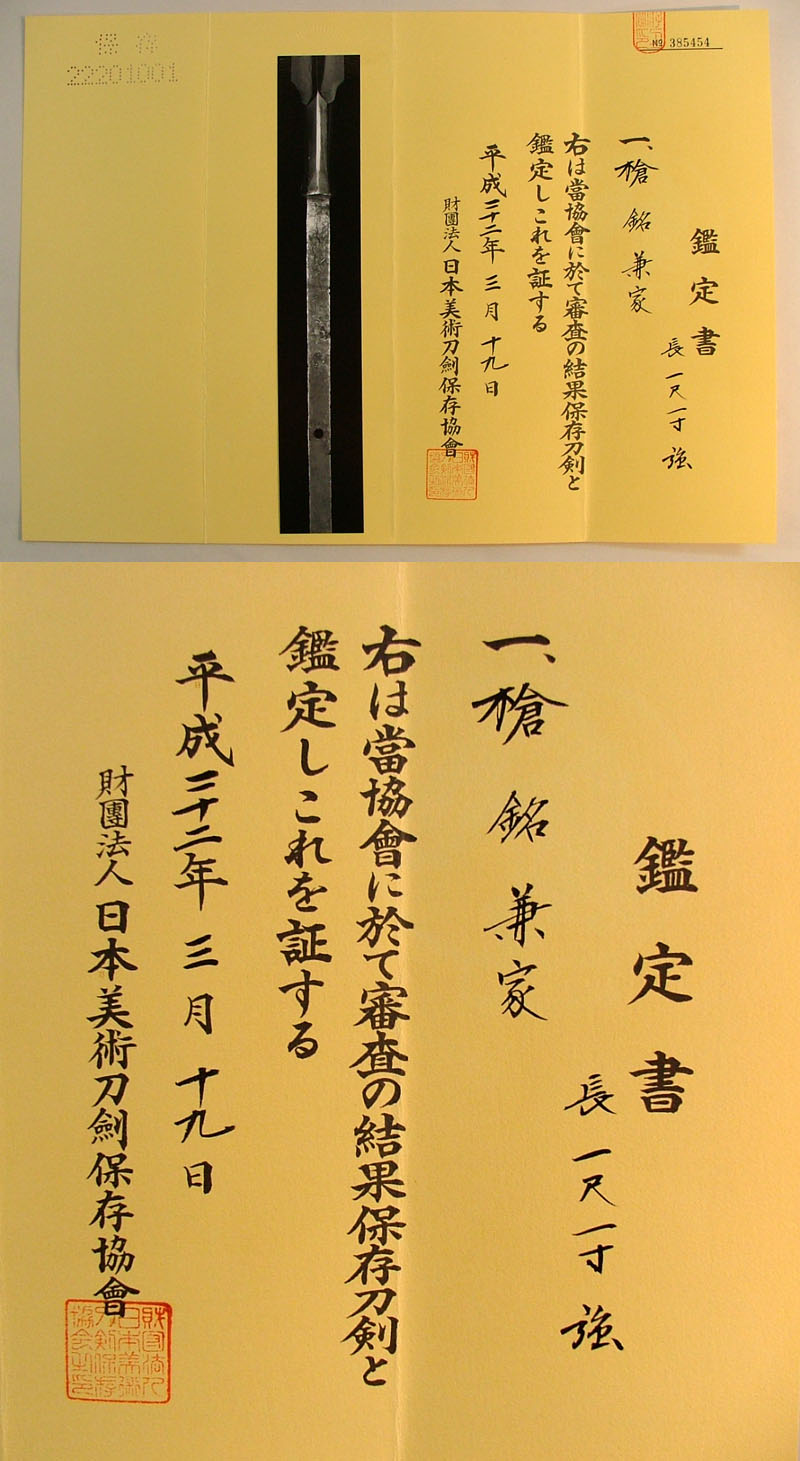 № 385454
鑑定書
長 一尺一寸強
一、槍 銘 兼家
右は當協會に於て審査の結果保存刀剣と
鑑定しこれを証する
平成二十二年 三月 十九日
財團法人日本美術刀劍保存協會
財団法人
日本美術
刀剣保存
協会之印
保存
22201001
鑑定書
長 一尺一寸強
一、槍 銘 兼家
右は當協會に於て審査の結果保存刀剣と
鑑定しこれを証する
平成二十二年 三月 十九日
財團法人日本美術刀劍保存協會
財団法人
日本美術
刀剣保存
協会之印